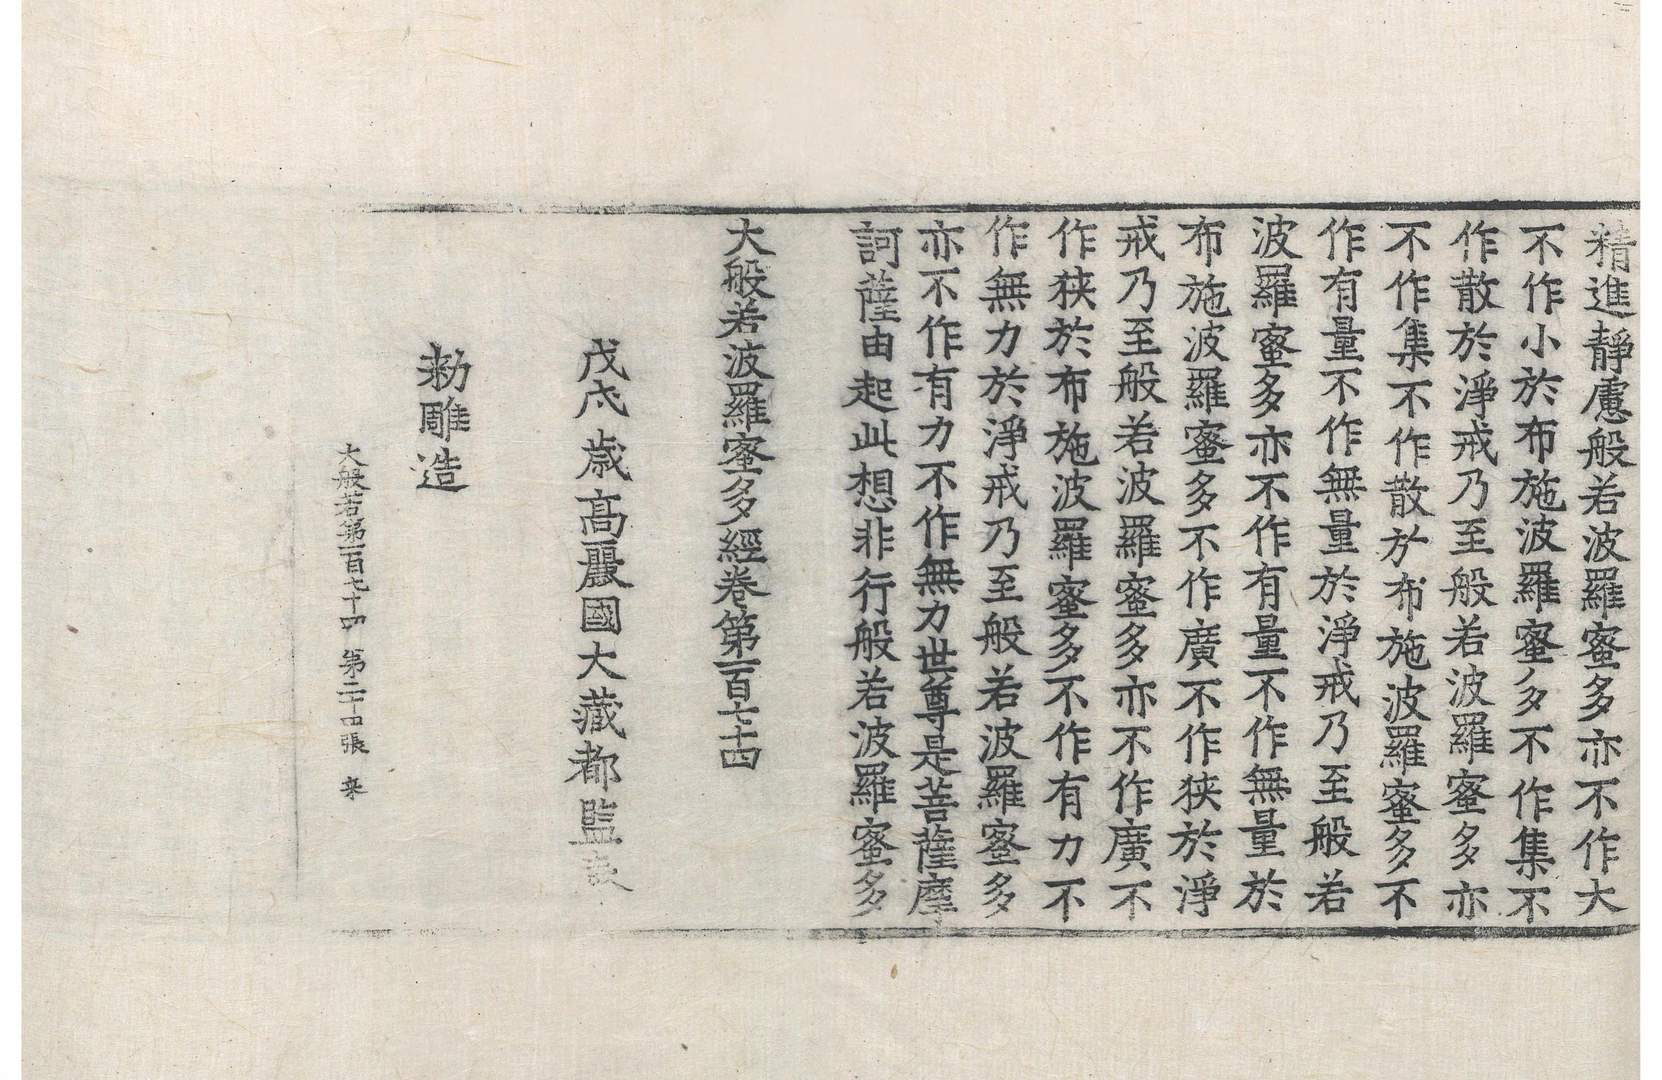 精進靜慮般若波羅蜜多亦不作大
不作小於布施波羅蜜多不作集不
作散於淨戒乃至般若波羅蜜多亦
不作集不作散於布施波羅蜜多不
作有量不作無量於淨戒乃至般若
波羅蜜多亦不作有量不作無量於
布施波羅蜜多不作廣不作狭於淨
戒乃至般若波羅蜜多亦不作廣不
作狭於布施波羅蜜多不作有力不
作無力於淨戒乃至般若波羅蜜多
亦不作有力不作無力世尊是菩薩摩
訶薩由起此想非行般若波羅蜜多
大般若波羅蜜多經卷第一百七十四
戊戌歲高麗國大藏都監奉
勑雕造
大般若第一百七十四 第二十四張 来